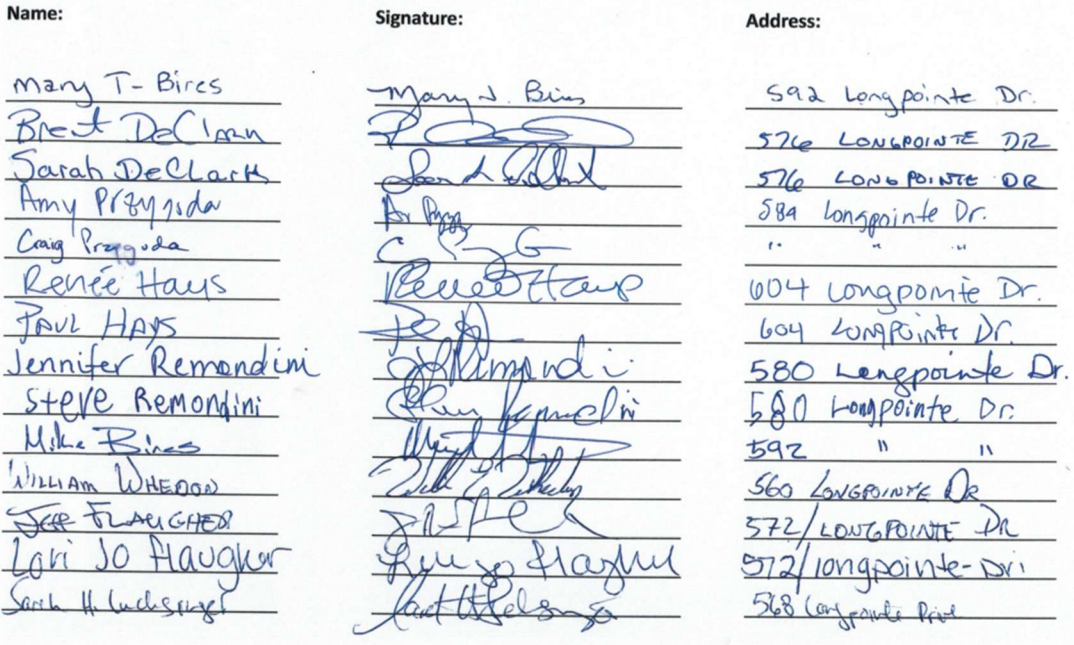 Name: Signature: Address:
Mary T- Bires Mary J. Bires 592 Longpointe Dr.
Brent DeClark 576 LONGPOINTE DR
Sarah DeClark 576 LONGPOINTE DR
Amy Przygoda 584 Longpointe Dr.
Craig Przygoda C " " "
Renée Hays Renée Hays 604 Longpointe Dr.
PAUL HAYS 604 LONGPOINTE Dr.
Jennifer Remondini JRemondini 580 Longpointe Dr.
Steve Remondini Steve Remondini 580 Longpointe Dr.
Mike Bires 592 " "
WILLIAM WHEDON 560 LONGPOINTE DR
JEFF FLAUGHER 572/LONGPOINTE DR
Lori Jo Flaugher Lori Jo Flaugher 572/longpointe-Dri
Sarah H. 568 Longpointe Drive